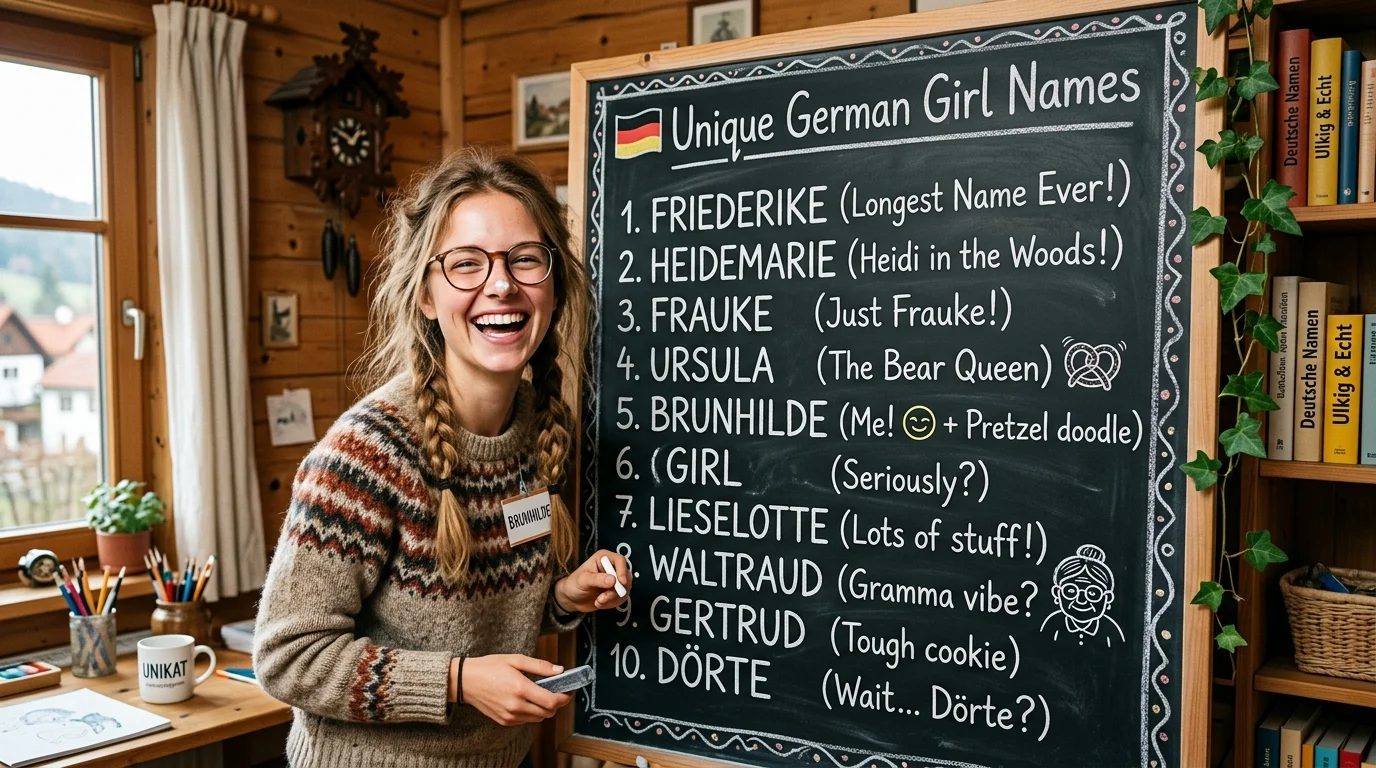 Unique German Girl Names
1. FRIEDERIKE (Longest Name Ever!)
2. HEIDEMARIE (Heidi in the Woods!)
3. FRAUKE (Just Frauke!)
4. URSULA (The Bear Queen)
5. BRUNHILDE (Me! 😊 + Pretzel doodle)
6. (GIRL (Seriously?)
7. LIESELOTTE (Lots of stuff!)
8. WALTRAUD (Gramma vibe?
9. GERTRUD (Tough cookie)
10. DÖRTE (Wait... Dörte?)
BRUNHILDE
UNIKAT
Deutsche Namen
Ulkig & Echt
Deutsche Namen
Ulkig & Echt